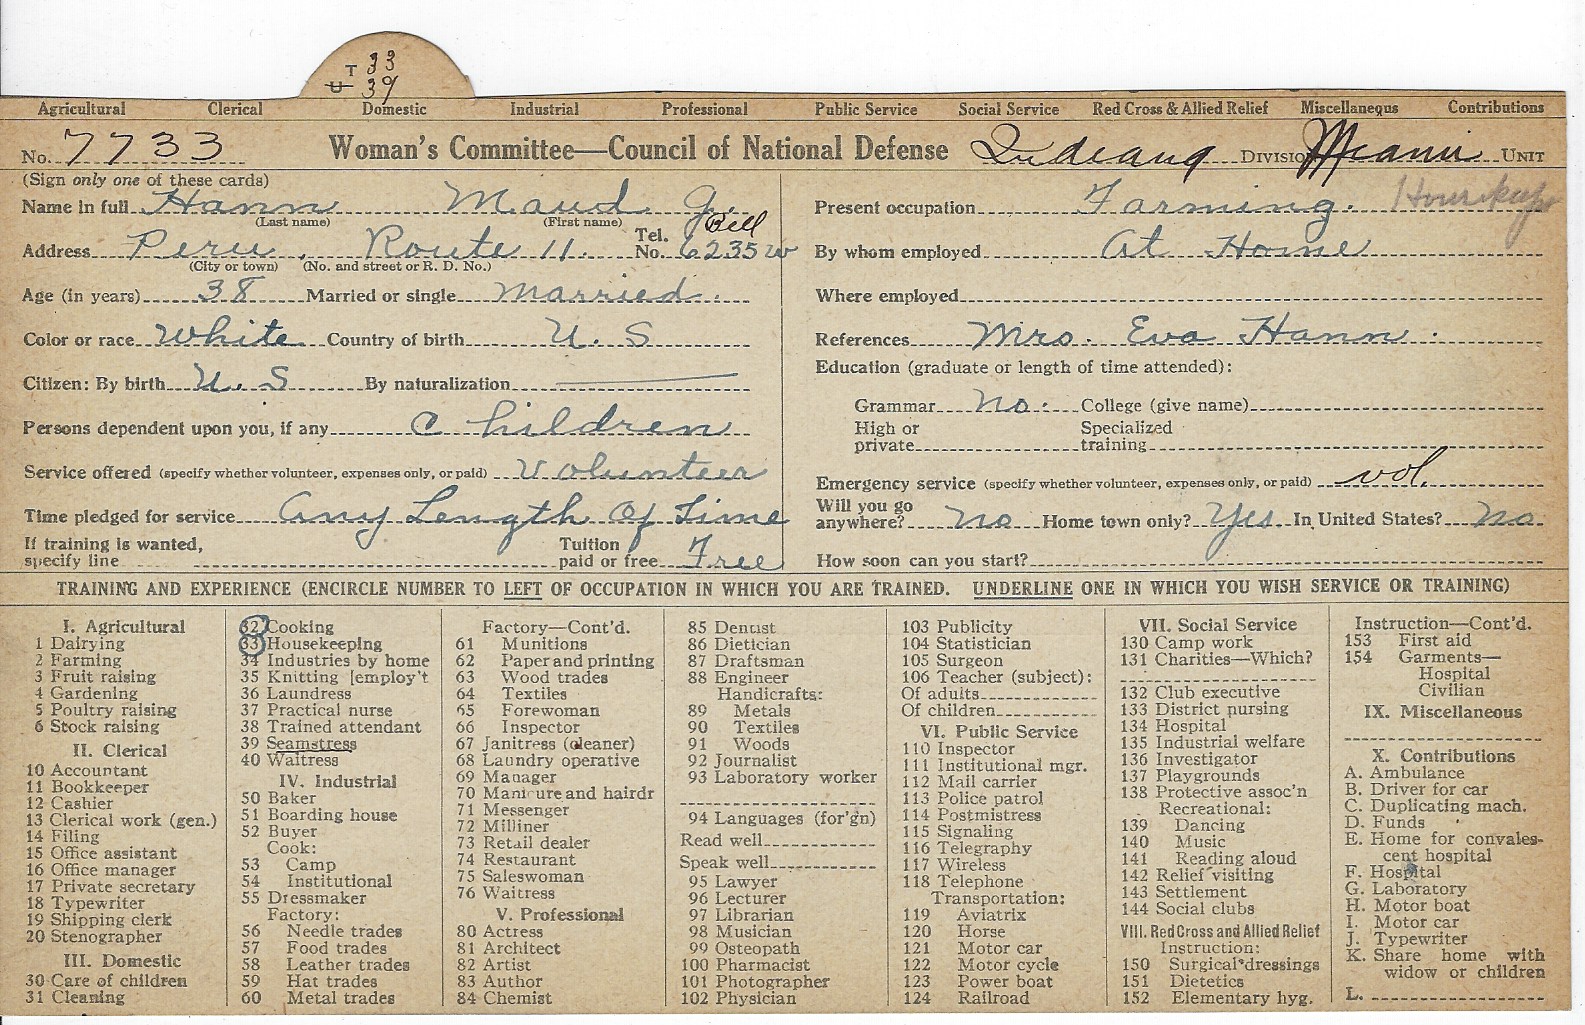 T 33
U 39
Agricultural Clerical Domestic Industrial Professional Public Service Social Service Red Cross & Allied Relief Miscellaneous Contributions
No. 7733 Woman's Committee—Council of National Defense Indiana DIVISION Miami UNIT
(Sign only one of these cards)
Name in full Hann Maud G.
(Last name) (First name)
Bell
Address Peru, Route 11. Tel. No. 6235 w
(City or town) (No. and street or R. D. No.)
Age (in years) 38 Married or single Married.
Color or race White Country of birth U. S
Citizen: By birth U. S By naturalization
Persons dependent upon you, if any Children
Service offered (specify whether volunteer, expenses only, or paid) Volunteer
Time pledged for service Any Length Of Time
If training is wanted, specify line Tuition paid or free Free
Present occupation Farming. Housekeep
By whom employed At Home
Where employed
References Mrs. Eva Hann.
Education (graduate or length of time attended):
Grammar no. College (give name)
High or private Specialized training
Emergency service (specify whether volunteer, expenses only, or paid) vol.
Will you go anywhere? no Home town only? Yes In United States? no
How soon can you start?
TRAINING AND EXPERIENCE (ENCIRCLE NUMBER TO LEFT OF OCCUPATION IN WHICH YOU ARE TRAINED. UNDERLINE ONE IN WHICH YOU WISH SERVICE OR TRAINING)
I. Agricultural
1 Dairying
2 Farming
3 Fruit raising
4 Gardening
5 Poultry raising
6 Stock raising
II. Clerical
10 Accountant
11 Bookkeeper
12 Cashier
13 Clerical work (gen.)
14 Filing
15 Office assistant
16 Office manager
17 Private secretary
18 Typewriter
19 Shipping clerk
20 Stenographer
III. Domestic
30 Care of children
31 Cleaning
32 Cooking
33 Housekeeping
34 Industries by home
35 Knitting [employ't
36 Laundress
37 Practical nurse
38 Trained attendant
39 Seamstress
40 Waitress
IV. Industrial
50 Baker
51 Boarding house
52 Buyer
Cook:
53 Camp
54 Institutional
55 Dressmaker
Factory:
56 Needle trades
57 Food trades
58 Leather trades
59 Hat trades
60 Metal trades
Factory—Cont'd.
61 Munitions
62 Paper and printing
63 Wood trades
64 Textiles
65 Forewoman
66 Inspector
67 Janitress (cleaner)
68 Laundry operative
69 Manager
70 Manicure and hairdr
71 Messenger
72 Milliner
73 Retail dealer
74 Restaurant
75 Saleswoman
76 Waitress
V. Professional
80 Actress
81 Architect
82 Artist
83 Author
84 Chemist
85 Dentist
86 Dietician
87 Draftsman
88 Engineer
Handicrafts:
89 Metals
90 Textiles
91 Woods
92 Journalist
93 Laboratory worker
94 Languages (for'gn)
Read well
Speak well
95 Lawyer
96 Lecturer
97 Librarian
98 Musician
99 Osteopath
100 Pharmacist
101 Photographer
102 Physician
103 Publicity
104 Statistician
105 Surgeon
106 Teacher (subject):
Of adults
Of children
VI. Public Service
110 Inspector
111 Institutional mgr.
112 Mail carrier
113 Police patrol
114 Postmistress
115 Signaling
116 Telegraphy
117 Wireless
118 Telephone
Transportation:
119 Aviatrix
120 Horse
121 Motor car
122 Motor cycle
123 Power boat
124 Railroad
VII. Social Service
130 Camp work
131 Charities—Which?
132 Club executive
133 District nursing
134 Hospital
135 Industrial welfare
136 Investigator
137 Playgrounds
138 Protective assoc'n
Recreational:
139 Dancing
140 Music
141 Reading aloud
142 Relief visiting
143 Settlement
144 Social clubs
VIII. Red Cross and Allied Relief
Instruction:
150 Surgical dressings
151 Dietetics
152 Elementary hyg.
Instruction—Cont'd.
153 First aid
154 Garments—
Hospital
Civilian
IX. Miscellaneous
X. Contributions
A. Ambulance
B. Driver for car
C. Duplicating mach.
D. Funds
E. Home for convales-
cent hospital
F. Hospital
G. Laboratory
H. Motor boat
I. Motor car
J. Typewriter
K. Share home with
widow or children
L.